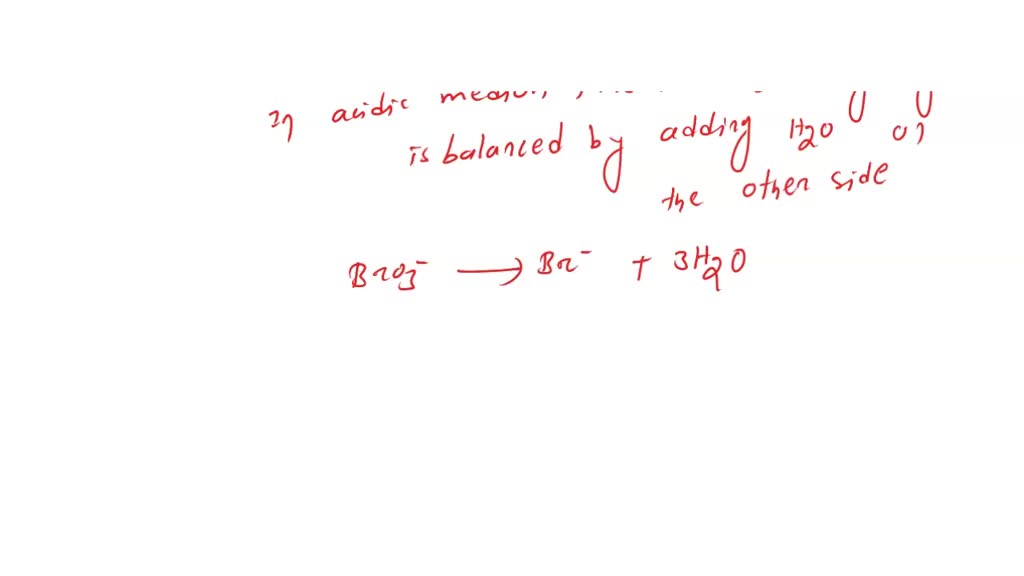 In acidic medium,
is balanced by adding H2O on
the other side
BrO3⁻ ⟶ Br⁻ + 3H2O